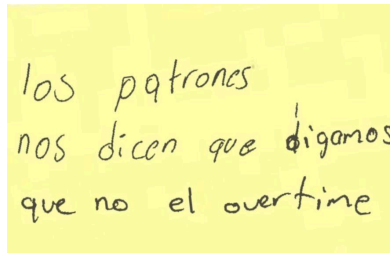 los patrones
nos dicen que digamos
que no el overtime